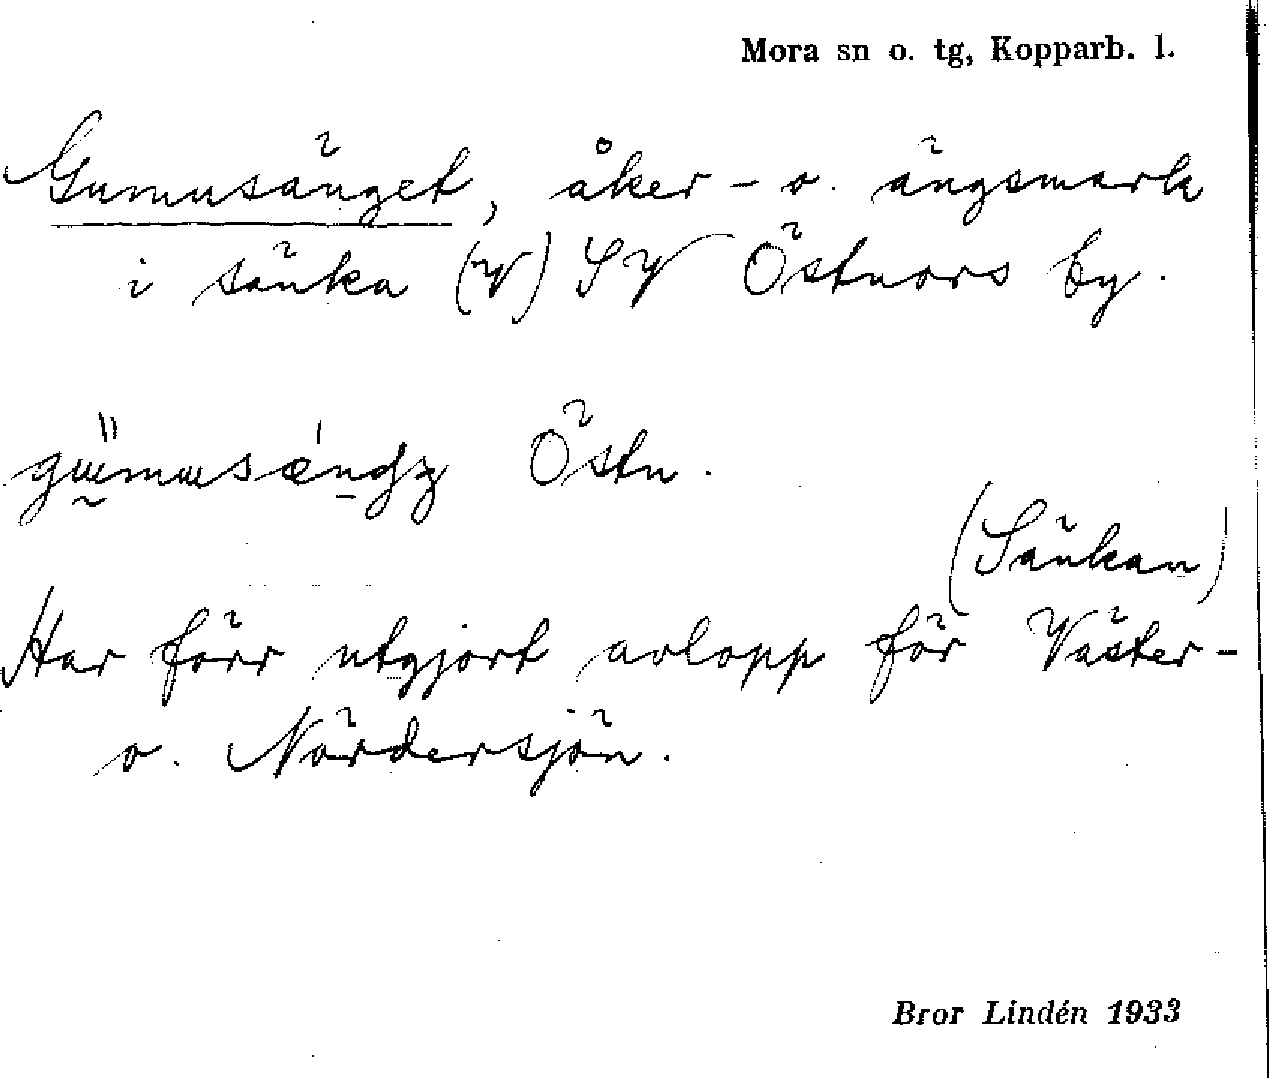 Mora sn o. tg, Kopparb. l.
Gumusänget, åker- o. ängsmark
i sänka (V) SV Östnors by.
Östn.
(Sänkan)
Har förr utgjort avlopp för Väster-
o. Nördersjön.
Bror Lindén 1933